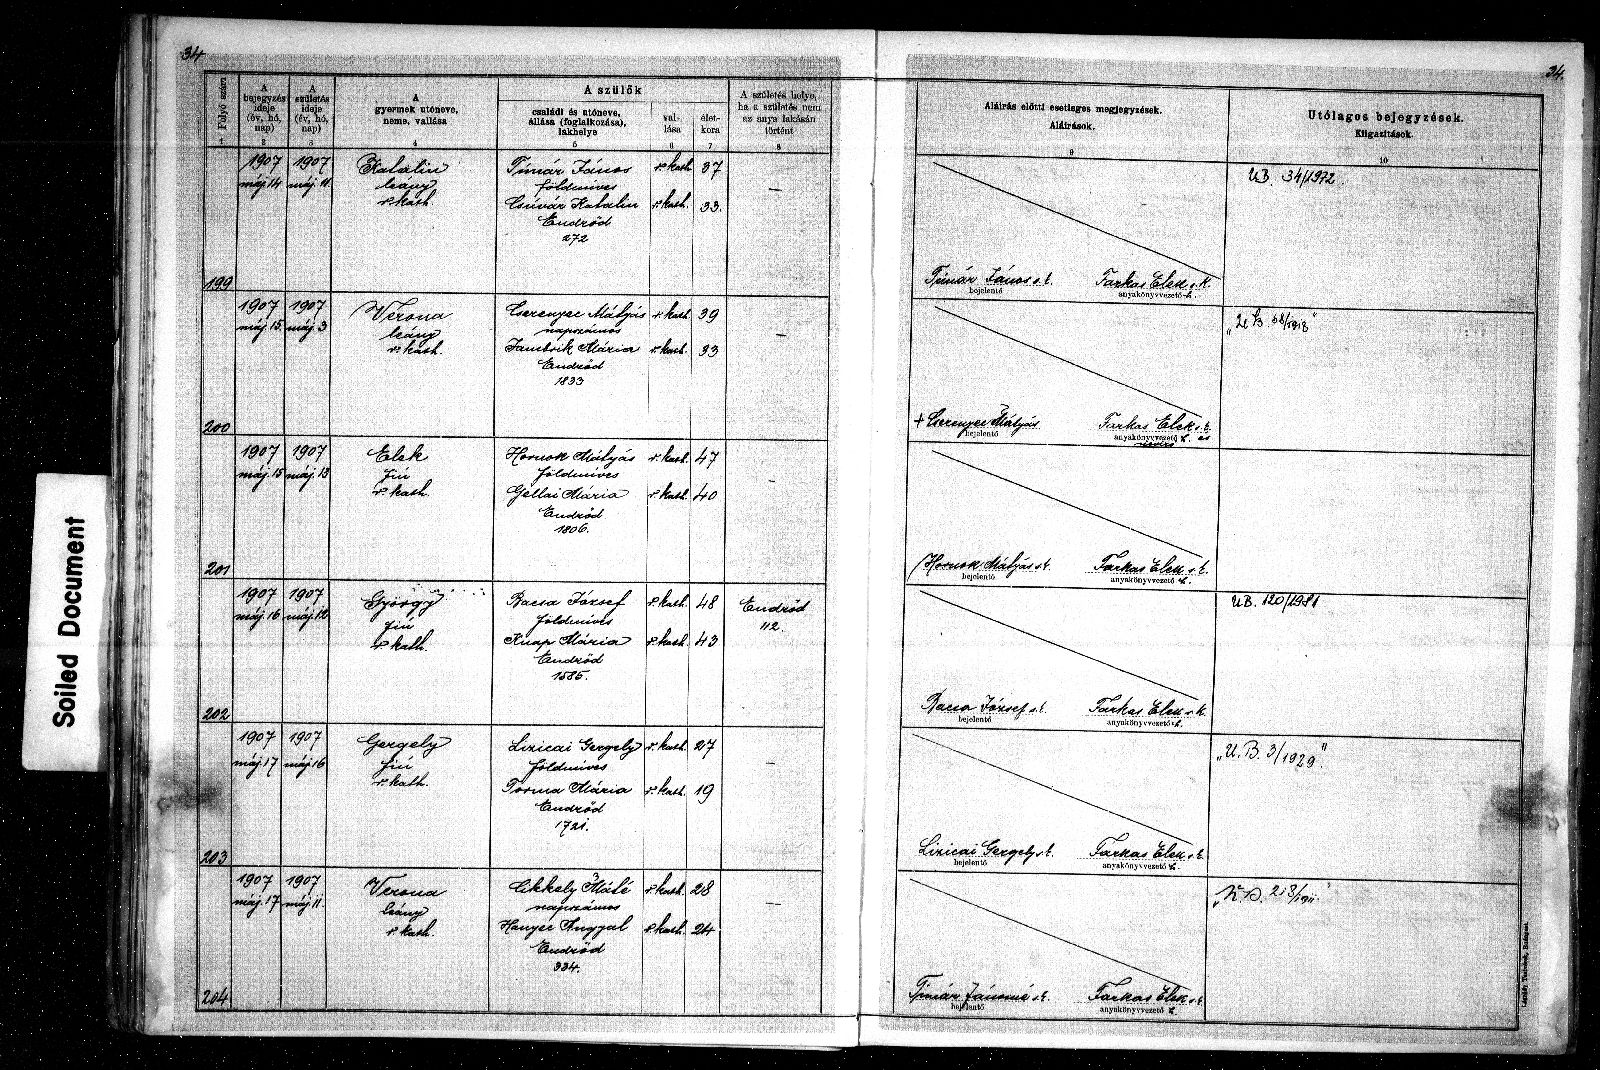 34
34.
Folyó szám
A bejegyzés ideje (év, hó, nap)
A születés ideje (év, hó, nap)
A gyermek utóneve, neme, vallása
A szülők
családi és utóneve, állása (foglalkozása), lakhelye
vallása
életkora
A születés helye, ha a születés nem az anya lakásán történt
Aláírás előtti esetleges megjegyzések.
Aláírások.
Utólagos bejegyzések.
Kiigazítások.
1 2 3 4 5 6 7 8 9 10
1907 1907 Katalin Tímár János r. kath. 37
máj. 14 máj. 11. leány földmíves —
r. kath. Csúvár Katalin r. kath. 33.
Endrőd
272
199
UB. 34/1972.
Tímár János s. k. Farkas Elek s. k.
bejelentő anyakönyvvezető h.
1907 1907 Verona Cserenyec Mátyás r. kath. 39
máj. 15. máj. 3 leány napszámos —
r. kath. Jambrik Mária r. kath. 33
Endrőd
1833
200
+ Cserenyec Mátyás Farkas Elek s. k.
bejelentő anyakönyvvezető h. és
1907 1907 Elek Hornok Mátyás r. kath. 47
máj. 15 máj. 13 fiú földmíves —
r. kath. Gellai Mária r. kath. 40
Endrőd
1806.
201
Hornok Mátyás s. k. Farkas Elek s. k.
bejelentő anyakönyvvezető h.
1907 1907 György Bacsa József r. kath. 48 Endrőd
máj. 16 máj. 12 fiú földmíves 112.
r. kath. Knap Mária r. kath. 43
Endrőd
1585.
202
UB. 120/1981
Bacsa József s. k. Farkas Elek s. k.
bejelentő anyakönyvvezető h.
1907 1907 Gergely Lizicai Gergely r. kath. 27
máj. 17 máj. 16 fiú földmíves —
r. kath. Torma Mária r. kath. 19
Endrőd
1721.
203
„U. B. 3/1929."
Lizicai Gergely s. k. Farkas Elek s. k.
bejelentő anyakönyvvezető h.
1907 1907 Verona Cikkely Máté r. kath. 28
máj. 17 máj. 11. leány napszámos —
r. kath. Hanyec Angyal r. kath. 24
Endrőd
334.
204
Tímár Jánosné s. k. Farkas Elek s. k.
bejelentő anyakönyvvezető h.
Soiled Document